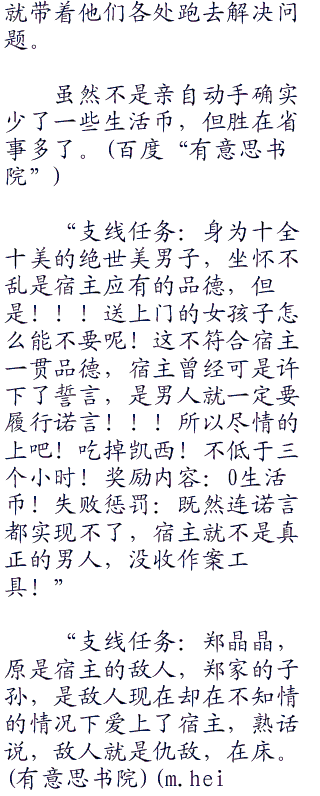 就带着他们各处跑去解决问
题。
虽然不是亲自动手确实
少了一些生活币，但胜在省
事多了。(百度“有意思书
院”)
“支线任务：身为十全
十美的绝世美男子，坐怀不
乱是宿主应有的品德，但
是！！！送上门的女孩子怎
么能不要呢！这不符合宿主
一贯品德，宿主曾经可是许
下了誓言，是男人就一定要
履行诺言！！！所以尽情的
上吧！吃掉凯西！不低于三
个小时！奖励内容：0生活
币！失败惩罚：既然连诺言
都实现不了，宿主就不是真
正的男人，没收作案工
具！”
“支线任务：郑晶晶，
原是宿主的敌人，郑家的子
孙，是敌人现在却在不知情
的情况下爱上了宿主，熟话
说，敌人就是仇敌，在床。
(有意思书院)(m.hei